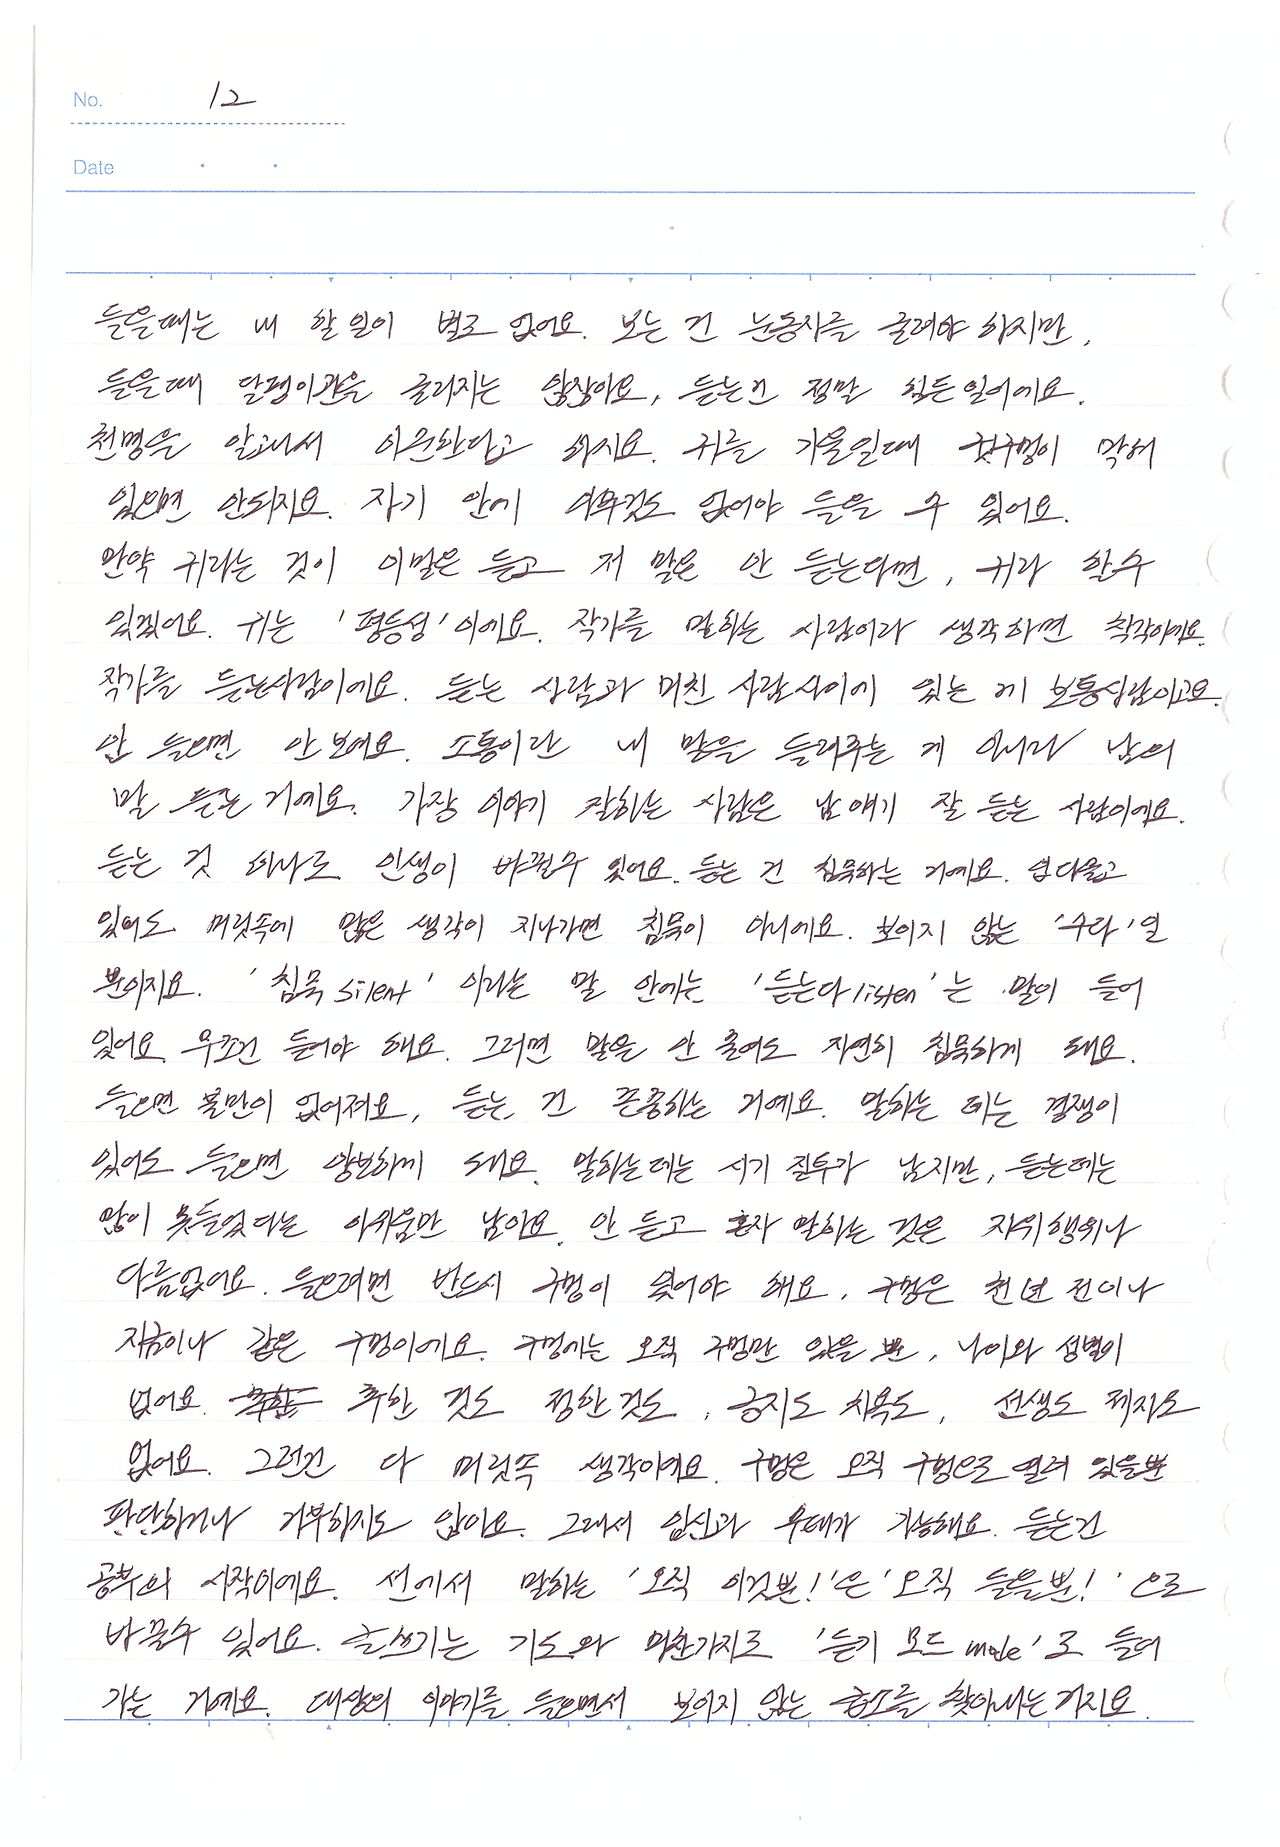 No. 12
Date
들을때는 내 할 일이 별로 없어요. 보는 건 눈동자를 굴려야 하지만,
들을때 달팽이관을 굴리지는 않잖아요, 듣는건 정말 힘든일이에요.
천명을 알고나서 이순한다고 하지요. 귀를 기울일때 귓구멍이 막혀
있으면 안되지요. 자기 안에 아무것도 없어야 들을 수 있어요.
만약 귀라는 것이 이말은 듣고 저 말은 안 듣는다면, 귀라 할수
있겠어요. 귀는 '평등성'이에요. 작가를 말하는 사람이라 생각하면 착각이에요.
작가를 듣는사람이에요. 듣는 사람과 미친 사람 사이에 있는 게 보통사람이고요.
안 들으면 안 보여요. 소통이란 내 말을 들려주는 게 아니라 남의
말 듣는 거예요. 가장 이야기 잘하는 사람은 남 얘기 잘 듣는 사람이에요.
듣는 것 하나로 인생이 바뀔수 있어요. 듣는 건 침묵하는 거예요. 입 다물고
있어도 머릿속에 많은 생각이 지나가면 침묵이 아니에요. 보이지 않는 '수다'일
뿐이지요. '침묵 silent' 이라는 말 안에는 '듣는다 listen'는 말이 들어
있어요. 무조건 들어야 해요. 그러면 말을 안 줄여도 자연히 침묵하게 돼요.
들으면 불만이 없어져요, 듣는 건 존중하는 거예요. 말하는 데는 경쟁이
있어도 들으면 양보하게 돼요. 말하는데는 시기 질투가 남지만, 듣는데는
많이 못들었다는 아쉬움만 남아요. 안 듣고 혼자 말하는 것은 자위행위나
다름없어요. 들으려면 반드시 구멍이 있어야 해요. 구멍은 천 년 전이나
지금이나 같은 구멍이에요. 구멍에는 오직 구멍만 있을 뿐, 나이와 성별이
없어요. 추한 것도 정한 것도, 긍지도 치욕도, 선생도 제자도
없어요. 그런건 다 머릿속 생각이에요. 구멍은 오직 구멍으로 열려 있을뿐
판단하거나 거부하지도 않아요. 그래서 임신과 우대가 가능해요. 듣는건
공부의 시작이에요. 선에서 말하는 '오직 이것뿐!'은 '오직 들을뿐!'으로
바꿀수 있어요. 글쓰기는 기도와 마찬가지로 '듣기 모드 mode'로 들어
가는 거예요. 대상의 이야기를 들으면서 보이지 않는 급소를 찾아내는 거지요.